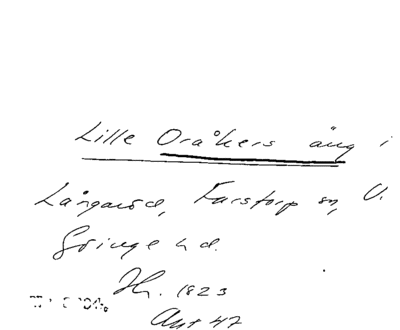 Lille Oråkers äng i
Långaröd, Farstorp sn, V.
Göinge hd.
Hr. 1823
Akt 47